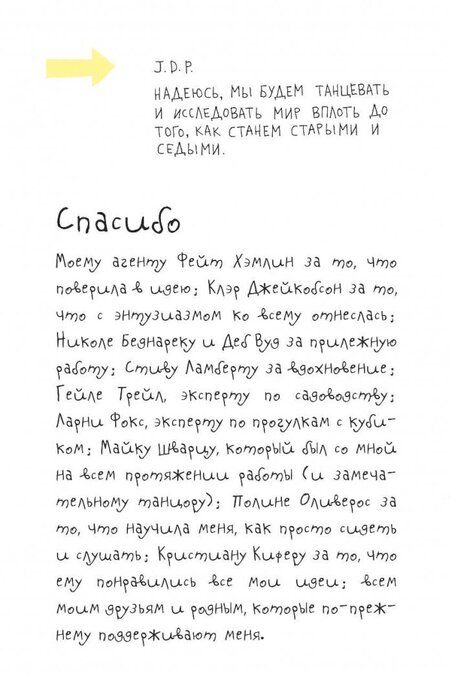 J.D.P.
НАДЕЮСЬ, МЫ БУДЕМ ТАНЦЕВАТЬ
И ИССЛЕДОВАТЬ МИР ВПЛОТЬ ДО
ТОГО, КАК СТАНЕМ СТАРЫМИ И
СЕДЫМИ.
Спасибо
Моему агенту Фейт Хэмлин за то, что
поверила в идею; Клэр Джейкобсон за то,
что с энтузиазмом ко всему отнеслась;
Николе Беднареку и Деб Вуд за прилежную
работу; Стиву Ламберту за вдохновение;
Гейле Трейл, эксперту по садоводству;
Ларни Фокс, эксперту по прогулкам с куби-
ком; Майку Шварцу, который был со мной
на всем протяжении работы (и замеча-
тельному танцору); Полине Оливерос за
то, что научила меня, как просто сидеть
и слушать; Кристиану Киферу за то, что
ему понравились все мои идеи; всем
моим друзьям и родным, которые по-преж-
нему поддерживают меня.